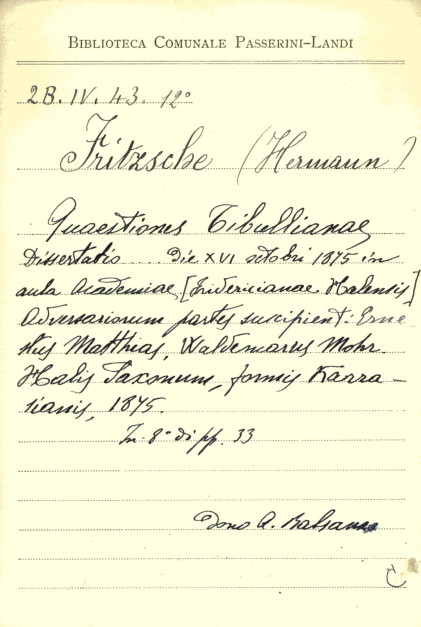 BIBLIOTECA COMUNALE PASSERINI-LANDI
2B. IV. 43. 12°
Fritzsche (Hermann)
Quaestiones Tibullianae
Dissertatio .... Die XVI octobri 1875 in
aula Academiae [Fridericianae Halensis]
Adversariorum partes suscipient: Erne
stus Matthias, Waldemarus Mohr.
Halis Saxonum, formis Karra-
sianis, 1875.
In-8° di pp. 33
Dono A. Balsamo